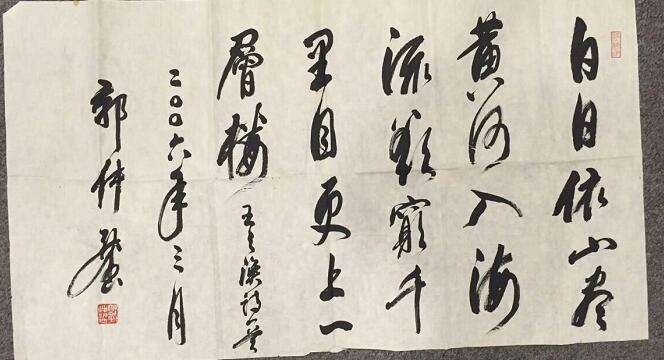 白日依山尽
黄河入海
流欲窮千
里目更上一
層楼 王之渙詩
二〇〇六年三月
郭